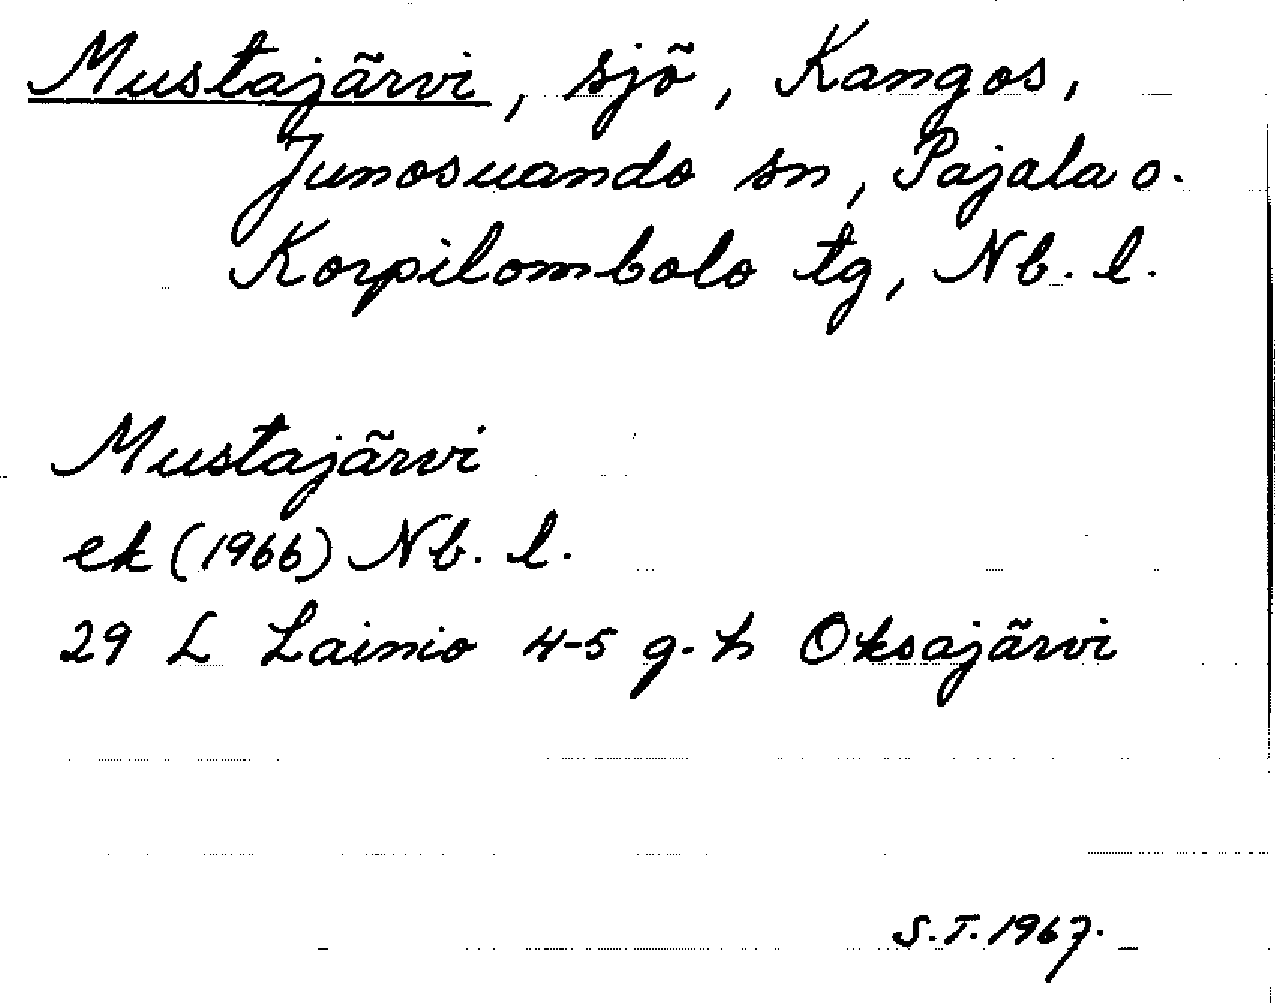 Mustajärvi, sjö, Kangos,
Junosuando sn, Pajala o.
Korpilombolo tg, Nb. l.
Mustajärvi
ek (1966) Nb. l.
29 L Lainio 4-5 g-h Oksajärvi
S.T. 1967.